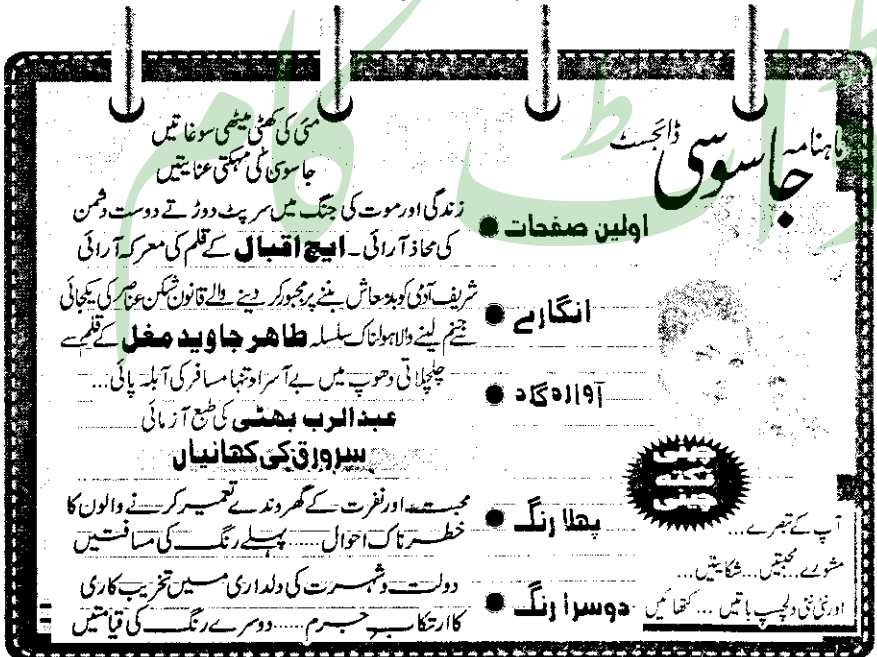 ماہنامہ جاسوسی ڈائجسٹ
مئی کی کھٹی میٹھی سوغاتیں
جاسوسی کی مہکتی عنایتیں
اولین صفحات
زندگی اور موت کی جنگ میں سرپٹ دوڑتے دوست دشمن
کی محاذ آرائی۔ ایچ اقبال کے قلم کی معرکہ آرائی
انگارے
شریف آدمی کو بدمعاش بننے پر مجبور کر دینے والے قانون شکن عناصر کی یکجائی
جنم لینے والا ہولناک سلسلہ طاهر جاوید مغل کے قلم سے
آوارہ گرد
چلچلاتی دھوپ میں بے آسرا و تنہا مسافر کی آبلہ پائی...
عبدالرب بھٹی کی طبع آزمائی
سرورق کی کہانیاں
پہلا رنگ
محبت اور نفرت کے گھروندے تعمیر کرنے والوں کا
خطرناک احوال...... پہلے رنگ کی مسافتیں
دوسرا رنگ
دولت و شہرت کی دلداری میں تخریب کاری
کا ارتکاب جرم..... دوسرے رنگ کی قیامتیں
چینی
نکتہ
چینی
آپ کے تبصرے...
مشورے... محبتیں... شکایتیں...
اور نئی نئی دلچسپ باتیں... کتھائیں
ڈاٹ کام